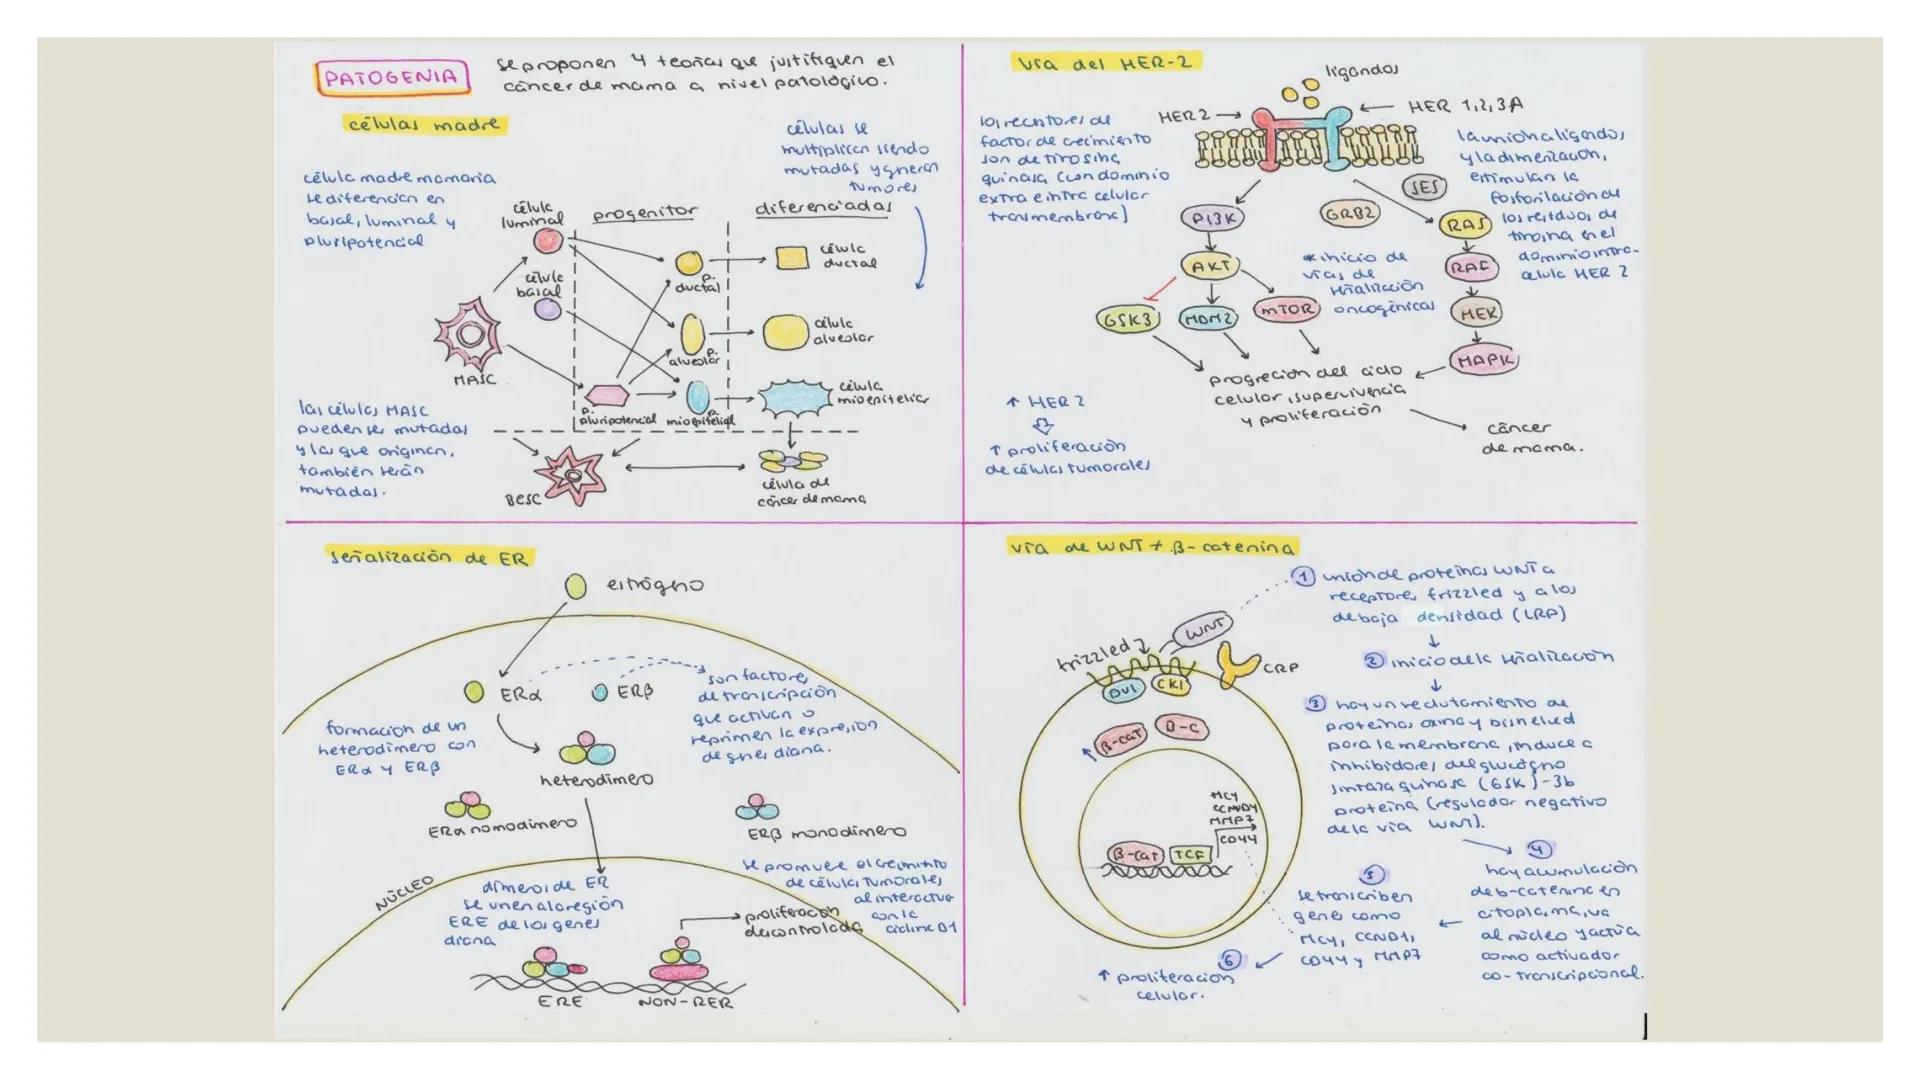 PATOGENIA
se proponen 4 teorías que justifiquen el
cáncer de mama a nivel patológico.
células madre
célula madre mamaria
se diferencian en
basal, luminal y
pluripotencial
células se
multiplican siendo
mutadas y generan
tumores
célula
luminal
progenitor
diferenciadas
célula
basal
p.
ductal
célula
ductal
p.
alveolar
célula
alveolar
MASC
p.
pluripotencial
p.
mioepitelial
célula
mioepitelial
las células MASC
pueden ser mutadas
y las que originan,
también serán
mutadas.
BCSC
célula de
cáncer de mama
Vía del HER-2
ligandos
HER 2
HER 1,2,3,4
los receptores de
factor de crecimiento
son de tirosina
quinasa (con dominio
extra e intra celular
transmembrana)
la unión a ligandos,
y la dimerización,
estimulan la
fosforilación de
los residuos de
tirosina en el
dominio intra-
celula HER 2
SES
PI3K
GRB2
RAS
AKT
RAF
*inicio de
vías de
señalización
oncogénicas
GSK3
MDM2
mTOR
MEK
MAPK
progreción del ciclo
celular, supervivencia
y proliferación
↑ HER 2
↑ proliferación
de células tumorales
cáncer
de mama.
señalización de ER
estrógeno
ERα
ERβ
son factores
de transcripción
que activan o
reprimen la expresión
de genes diana.
formación de un
heterodimero con
ERα y ERβ
heterodimero
ERα homodimero
ERβ monodimero
NÚCLEO
dimeros de ER
se unen a la región
ERE de los genes
diana
se promueve el crecimiento
de células tumorales,
al interactuar
con la
ciclina D1
proliferación
descontrolada
ERE
NON-RER
vía de WNT + β-catenina
1 unión de proteínas WNT a
receptores frizzled y a los
de baja densidad (LRP)
2 inicio de la señalización
3 hay un reclutamiento de
proteínas axina y disheled
para la membrana, induce a
inhibidores del glucógeno
sintaza quinasa (GSK)-3b
proteína (regulador negativo
de la vía WNT).
4
hay acumulación
de b-catenina en
citoplasma, va
al núcleo y actúa
como activador
co-transcripcional.
5
se transcriben
genes como
MCY, CCND1,
CD44 y MMP7
6
↑ proliferación
celular.
frizzled
WNT
CRP
DVI
CKI
β-cat
β-C
MCY
CCND1
MMP7
CD44
β-cat
TCF